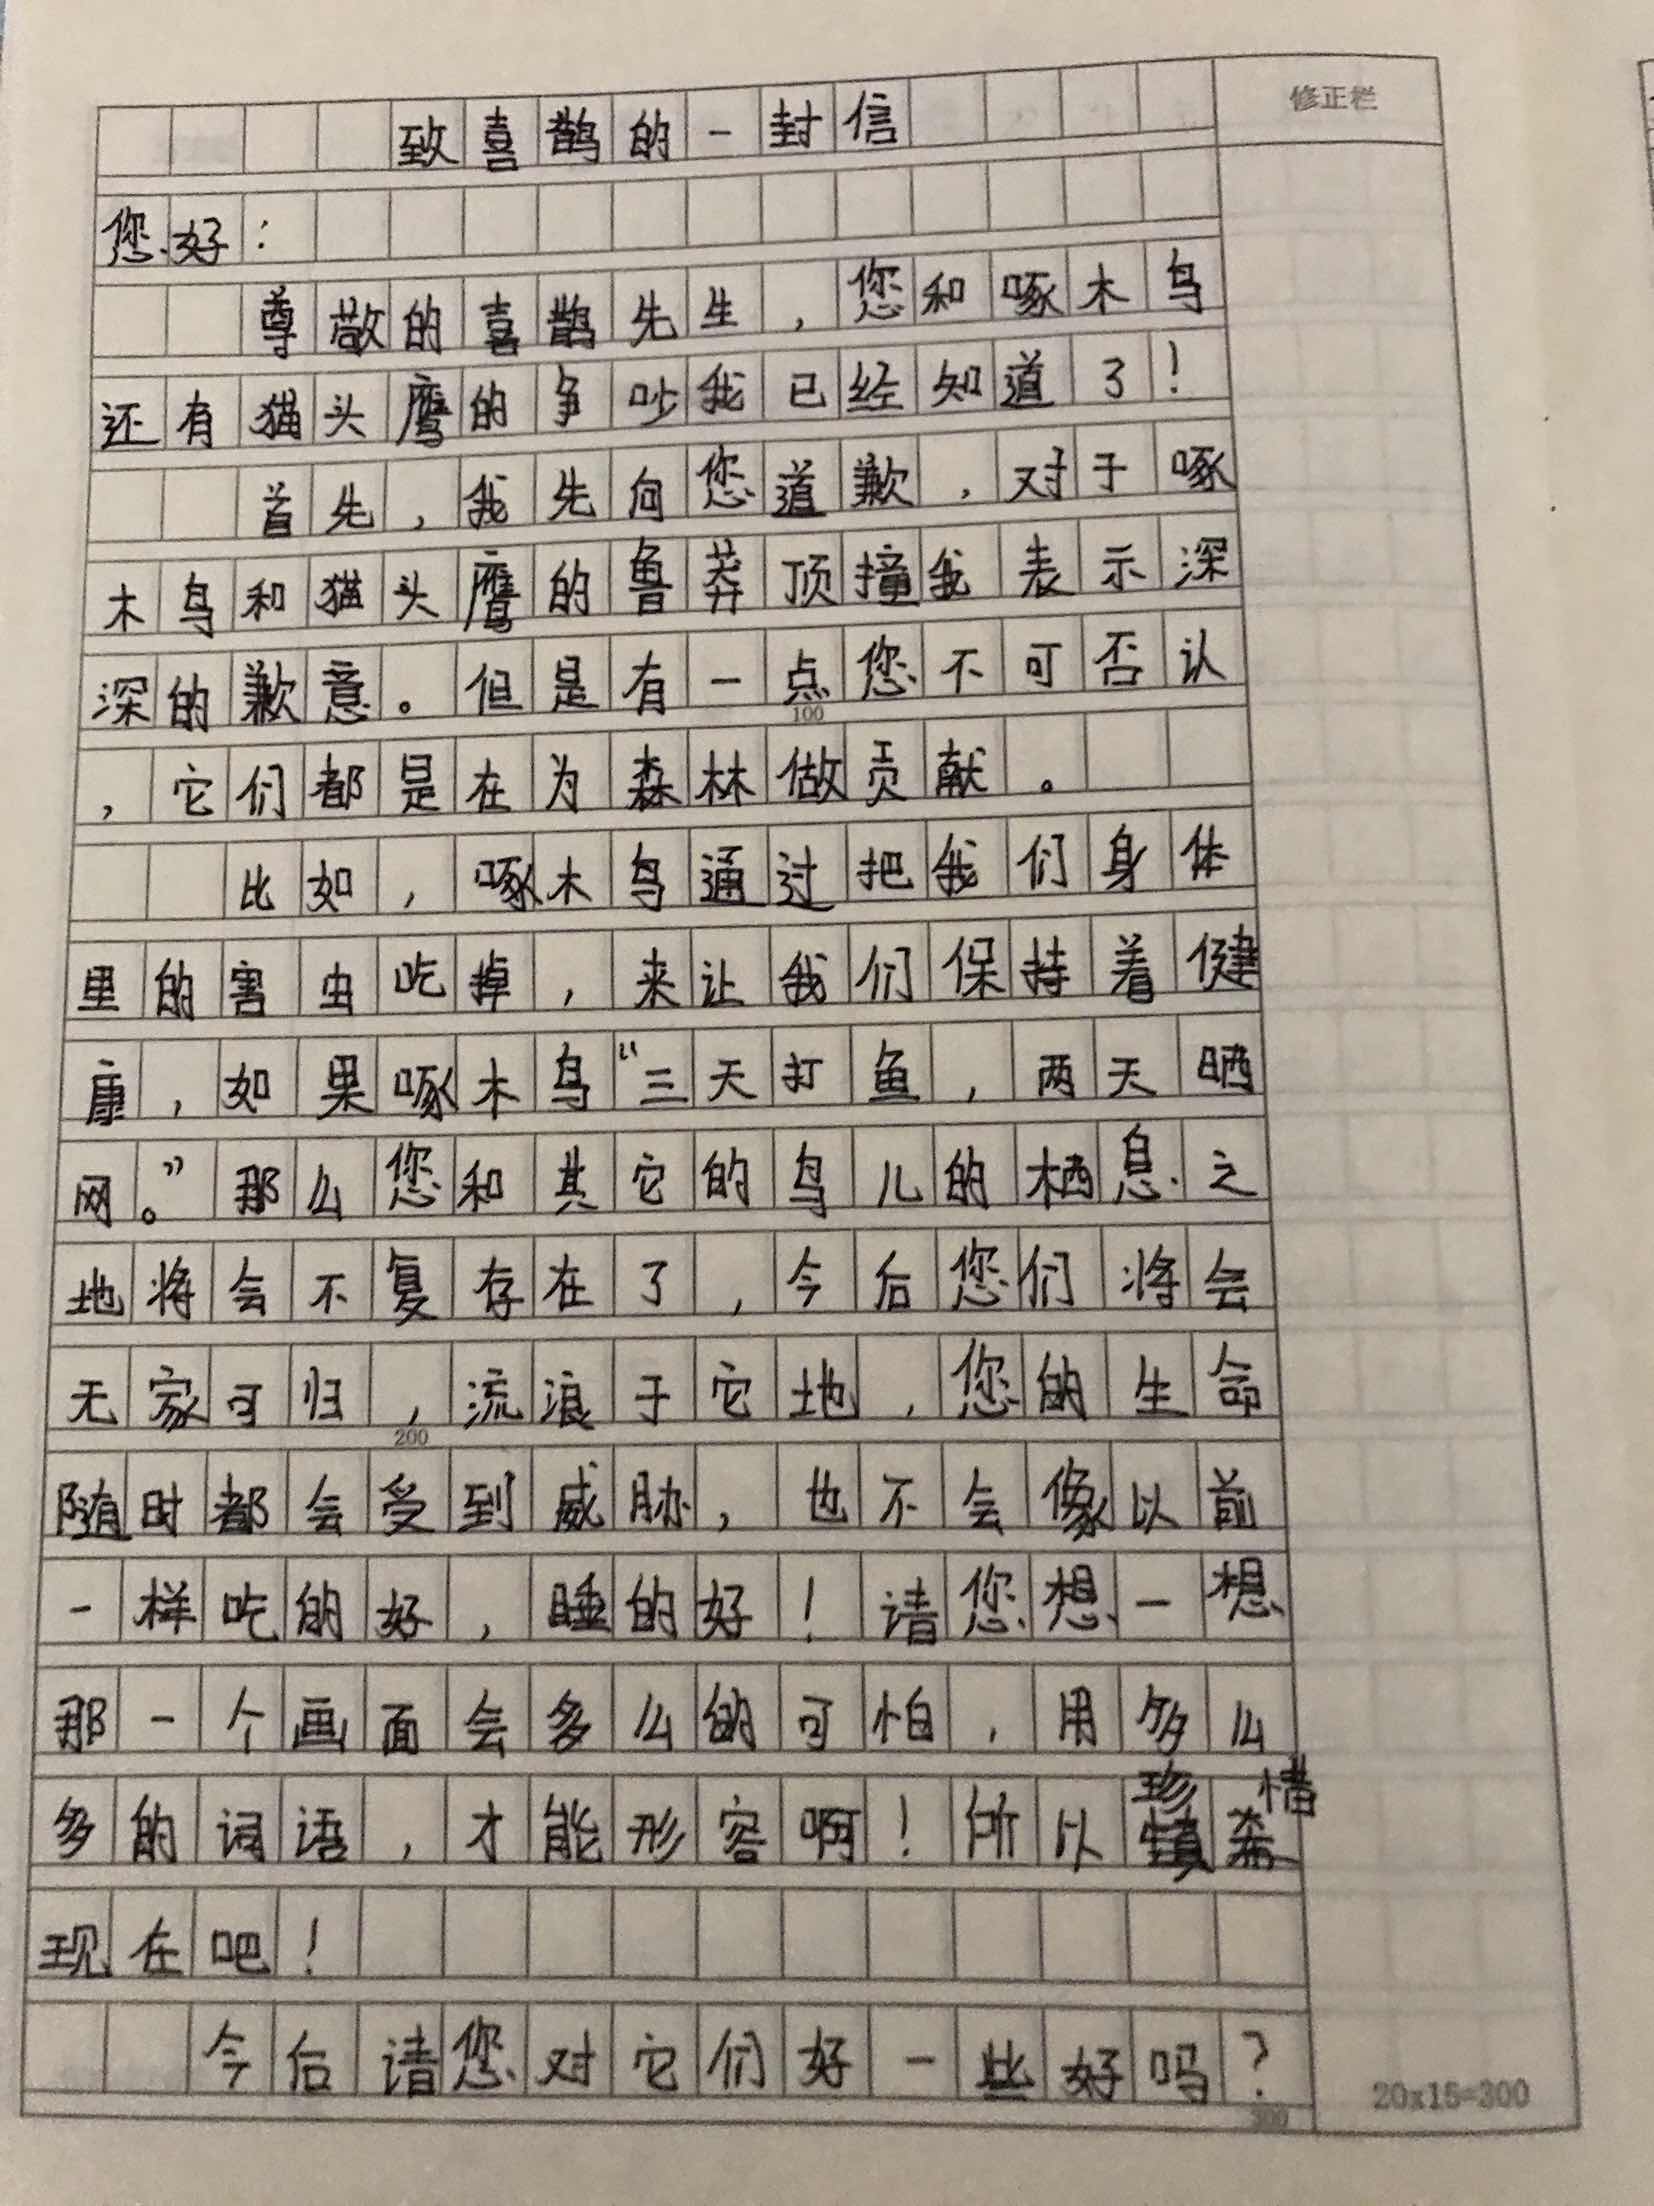 修正栏
致喜鹊的一封信
您好：
尊敬的喜鹊先生，您和啄木鸟
还有猫头鹰的争吵我已经知道了！
首先，我先向您道歉，对于啄
木鸟和猫头鹰的鲁莽顶撞我表示深
深的歉意。但是有一点您不可否认
100
，它们都是在为森林做贡献。
比如，啄木鸟通过把我们身体
里的害虫吃掉，来让我们保持着健
康，如果啄木鸟“三天打鱼，两天晒
网。”那么您和其它的鸟儿的栖息之
地将会不复存在了，今后您们将会
无家可归，流浪于它地，您的生命
200
随时都会受到威胁，也不会像以前
一样吃的好，睡的好！请您想一想
那一个画面会多么的可怕，用多么
多的词语，才能形容啊！所以珍惜
现在吧！
今后请您对它们好一些好吗？
300
20x15=300